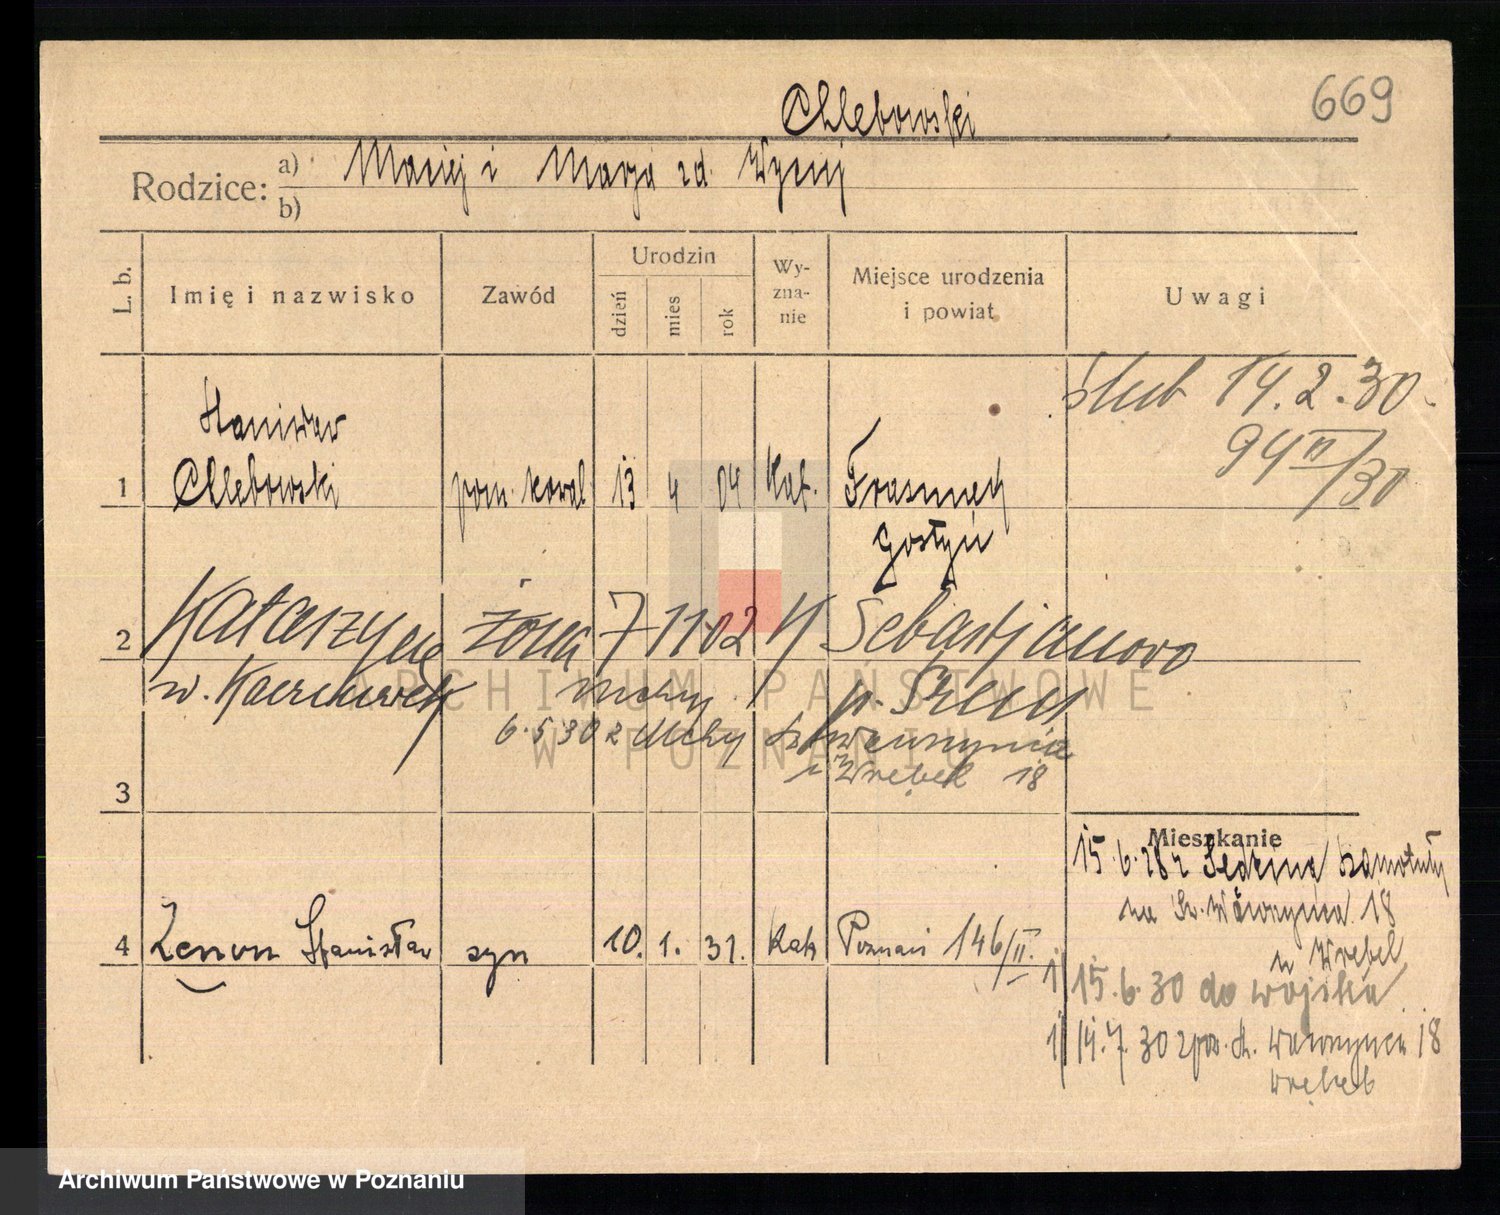 669
Chlebowski
Rodzice: a) Maciej i Marja zd.
b)
L. b.
Imię i nazwisko
Zawód
Urodzin
dzień
mies
rok
Wy-
zna-
nie
Miejsce urodzenia
i powiat
Uwagi
ślub 14.2.30
94 II/30
Stanisław
1 Chlebowski pom. kowal. 13 4 04 Kat.
Gostyń
2 Katarzyna żona 7 11 02 K Sebastjanowo
w. p. Śrem
6.5.30 z Mchy Wawrzyńca
u Wrębel 18
3
Mieszkanie
15.6.28 z Szamotuły
na Św. Wawrzyńca 18
u Wrębel
4 Zenon Stanisław syn 10. 1. 31. Kat Poznań 146/II.
1) 15.6.30 do wojska
1) 14.7.30 Wawrzyńca 18
ARCHIWUM PAŃSTWOWE
W POZNANIU
Archiwum Państwowe w Poznaniu